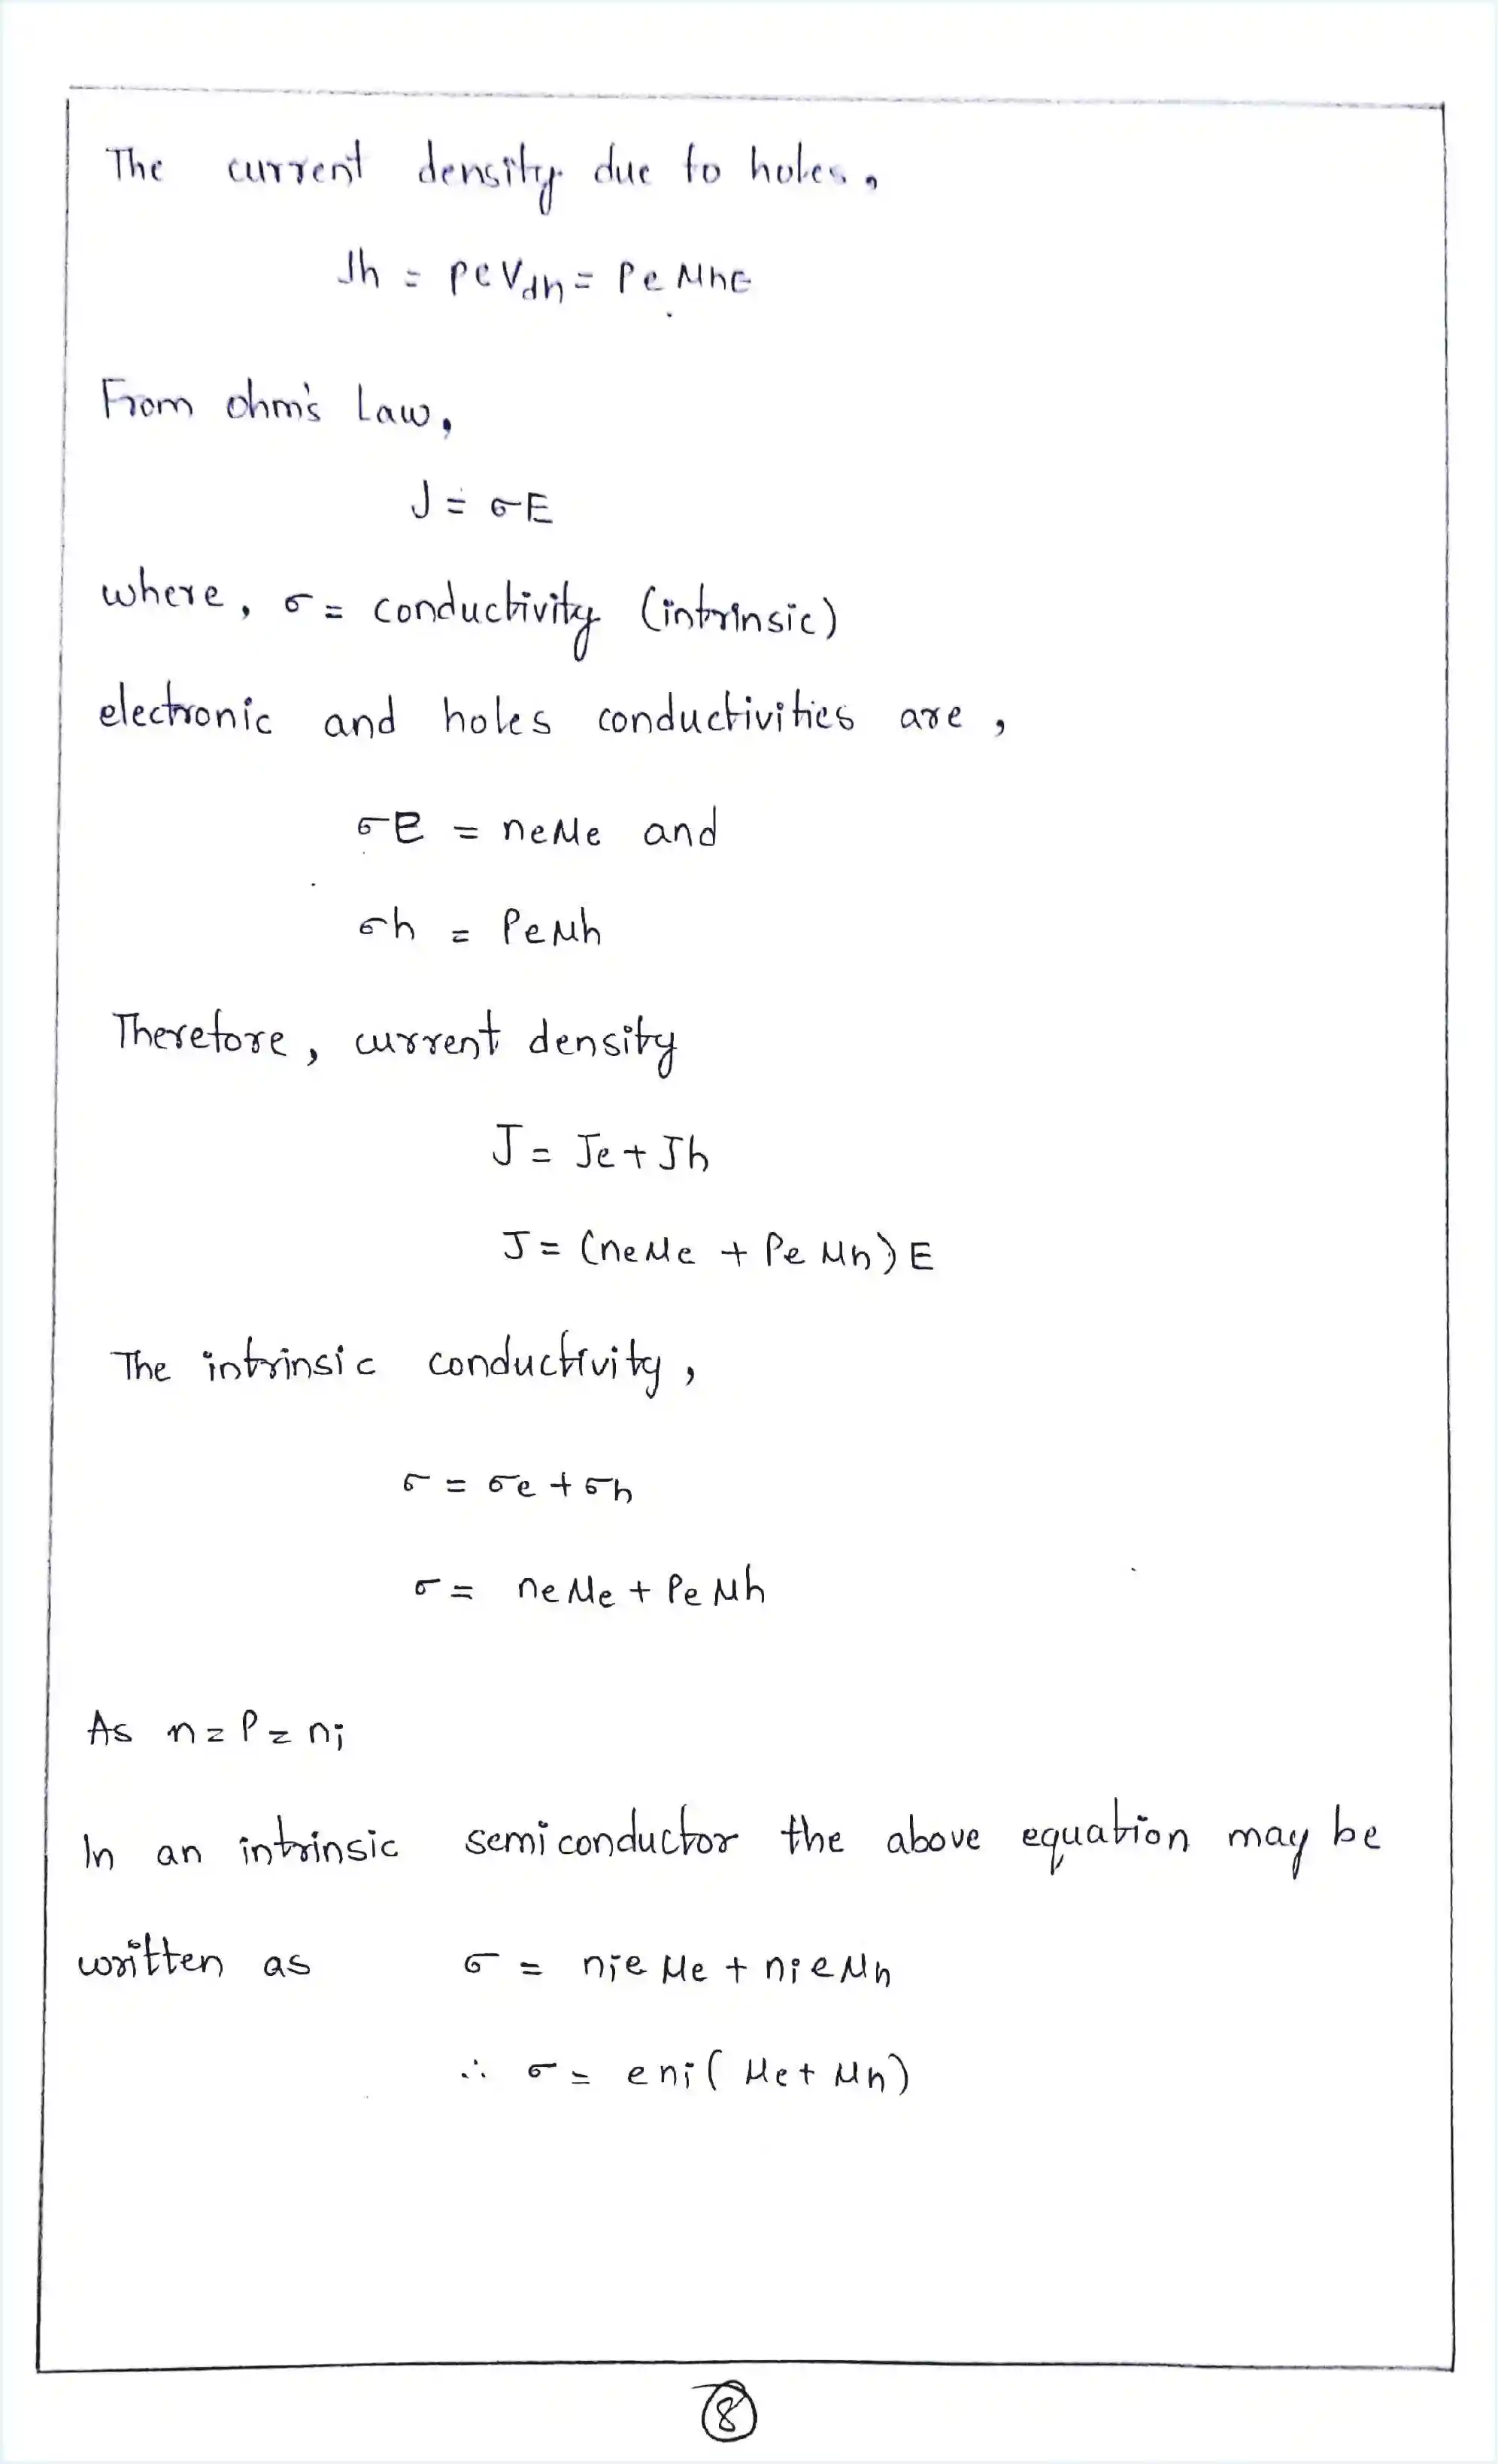 The current density due to holes,
Jh = peVdh = Pe μhE
From ohm's Law,
J = σE
where, σ = conductivity (intrinsic)
electronic and holes conductivities are,
σe = neμe and
σh = Peμh
Therefore, current density
J = Je + Jh
J = (neμe + Pe μh) E
The intrinsic conductivity,
σ = σe + σh
σ = neμe + Pe μh
As n = P = ni
In an intrinsic semiconductor the above equation may be
written as σ = nie μe + nie μh
∴ σ = eni( μe + μh)
8